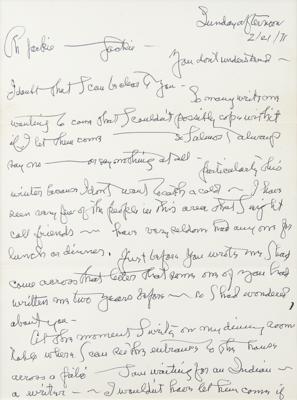 Sunday afternoon
2/21/71
Oh Jackie — Jackie —
You don't understand —
I doubt that I can be clear to you —
So many writers
wanting to come that I couldn't possibly cope with it
if I let them come — So I almost always
say no — or say nothing at all — Particularly this
winter because I don't want to catch a cold — I have
seen very few of the people in this area that I might
call friends — have very seldom had any one for
lunch or dinner. Just before you wrote me I had
come across that letter that some one of you had
written me two years before — so I had wondered
about you —
At this moment I write on my dining room
table where I can see the entrance to the house
across a patio — I am waiting for an Indian —
a writer — I wouldn't have let him come if